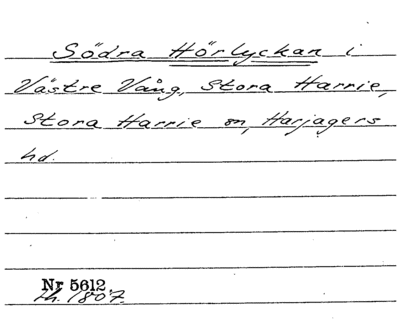 Södra Hörlyckan i
Västre Vång, Stora Harrie,
Stora Harrie sn, Harjagers
hd.
Nr 5612.
Lh. 1807.